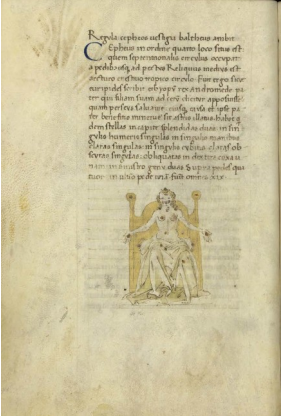 Regula cepheus uestigia baltheus ambit
Cepheus in ordine quarto loco situs est
quem septemtrionalis circulus occupat
a pedibus usq; ad pectus Reliquus medius est
arcturo et estiuo tropico circulo Fuit ergo sicut
euripides scribit ethyopum rex andromede pa
ter qui filiam suam ad cetum dicitur apposuisse
quam perseus saluauit cuius et ipse pa
ter beneficio minerue sit astris illatus habet q
dem stellas in capite splendidas duas in sin
gulis humeris singulas in singulis manibus
claras singulas in singulis cubitis claras ob
scuras singulas obliquatas in dextra coxa u
nam in sinistro genu duas Supra pedes qua
tuor in uno pede unam Fiunt omnes xix